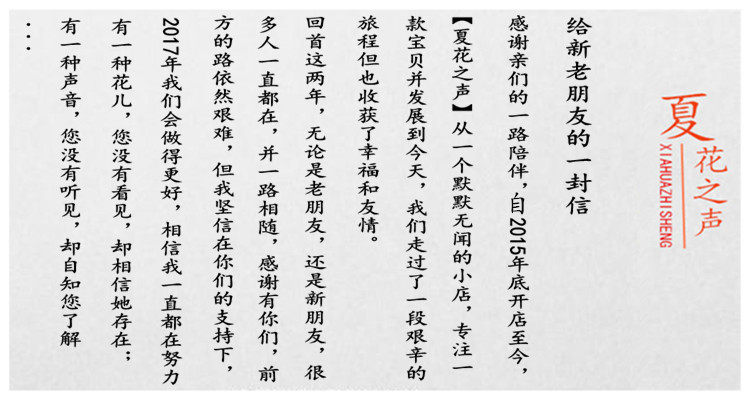 夏
花之声
XIAHUAZHI SHENG
给新老朋友的一封信
感谢亲们的一路陪伴，自2015年底开店至今，
【夏花之声】从一个默默无闻的小店，专注一
款宝贝并发展到今天，我们走过了一段艰辛的
旅程但也收获了幸福和友情。
回首这两年，无论是老朋友，还是新朋友，很
多人一直都在，并一路相随，感谢有你们，前
方的路依然艰难，但我坚信在你们的支持下，
2017年我们会做得更好，相信我一直都在努力
有一种花儿，您没有看见，却相信她存在；
有一种声音，您没有听见，却自知您了解
...